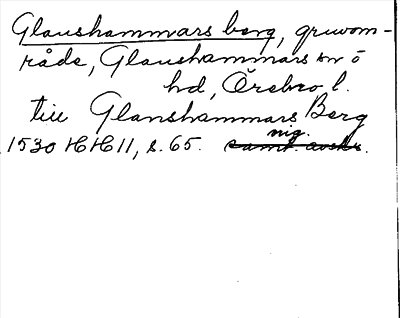 Glanshammars berg, gruvom-
råde, Glanshammars sn o
hd, Örebro l.
till Glanshammars Berg
nig.
1530 HH 11, s. 65. samt. avskr.